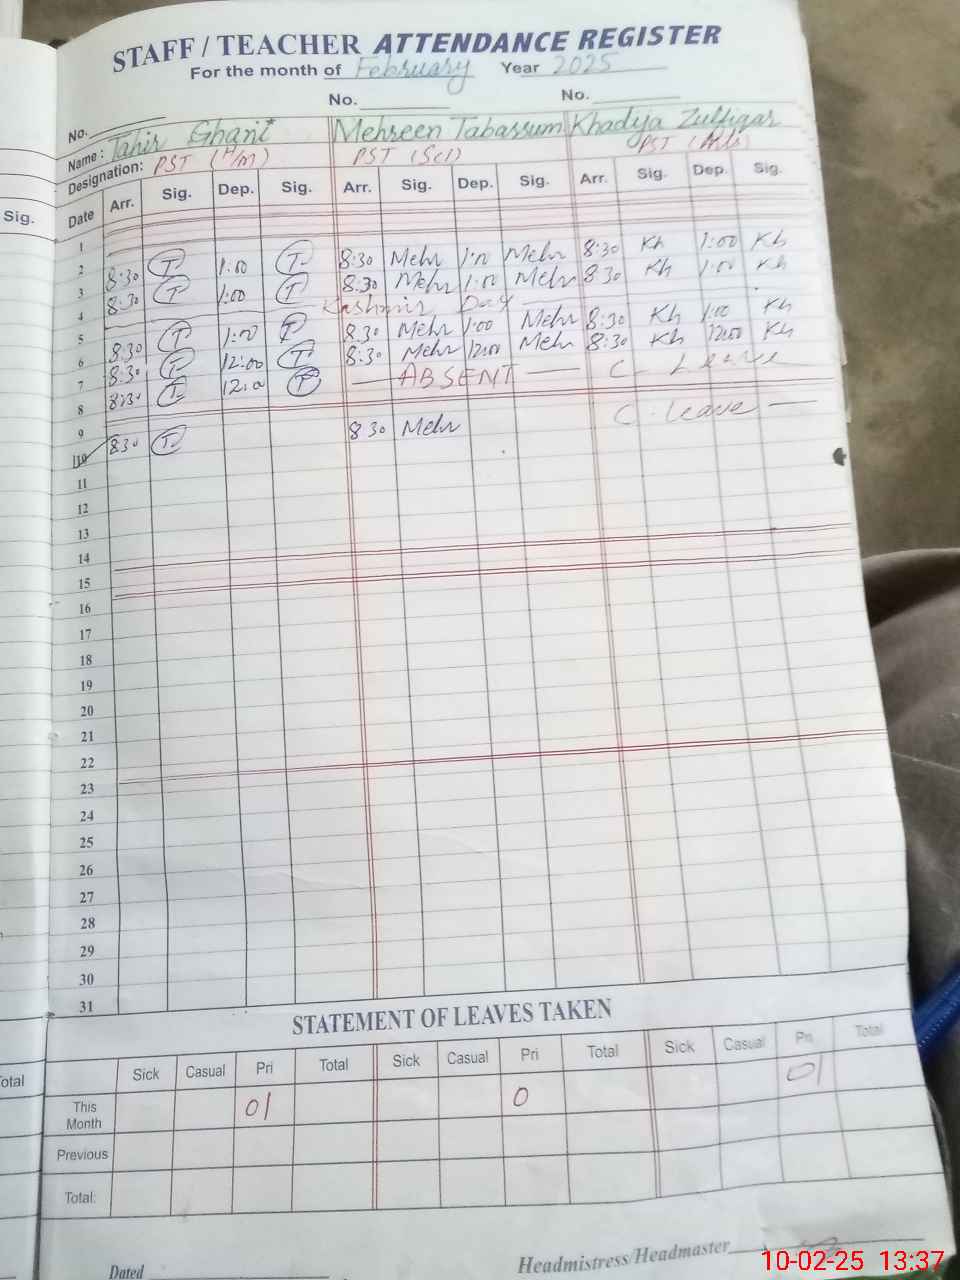 STAFF / TEACHER ATTENDANCE REGISTER
For the month of February Year 2025
No. No. No.
Name: Tahir Ghani Mehreen Tabassum Khadija Zulfiqar
Designation: PST (H/M) PST (Sci) PST
Date Arr. Sig. Dep. Sig. Arr. Sig. Dep. Sig. Arr. Sig. Dep. Sig.
Sig.
1
2
8:30 T 1:00 T 8:30 Mehr 1:00 Mehr 8:30 Kh 1:00 Kh
3
8:30 T 1:00 T 8:30 Mehr 1:00 Mehr 8:30 Kh 1:00 Kh
4
Kashmir Day
5
8:30 T 1:00 T 8:30 Mehr 1:00 Mehr 8:30 Kh 1:00 Kh
6
8:30 T 12:00 T 8:30 Mehr 12:00 Mehr 8:30 Kh 12:00 Kh
7
8:30 T 12:00 T ABSENT C. Leave
8
9
10 8:30 T 8:30 Mehr C. Leave
11
12
13
14
15
16
17
18
19
20
21
22
23
24
25
26
27
28
29
30
31
STATEMENT OF LEAVES TAKEN
Sick Casual Pri Total Sick Casual Pri Total Sick Casual Pri Total
This Month 01 0 01
Previous
Total:
Dated Headmistress/Headmaster
10-02-25 13:37